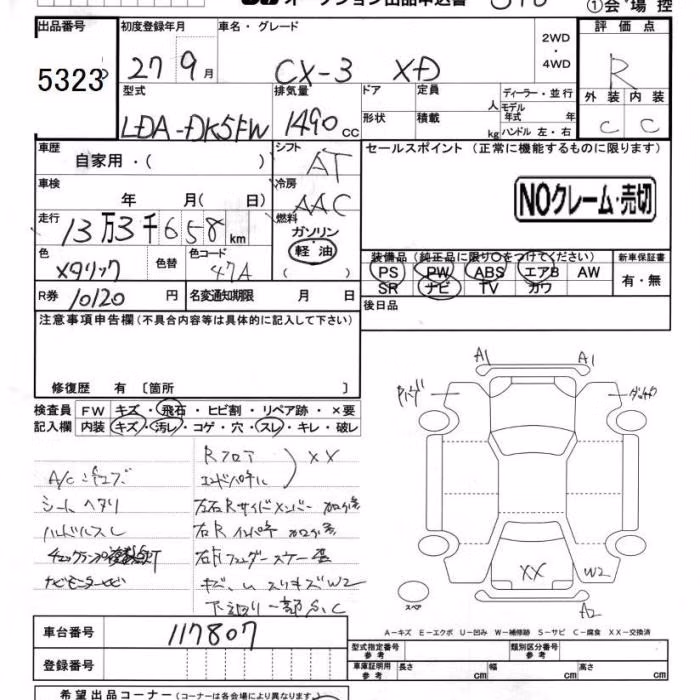 オークション出品申込書
①会場控
出品番号 初度登録年月 車名・グレード 2WD・4WD 評価点
5323 27 9月 CX-3 XD R
型式 排気量 ドア 定員 人 ディーラー・並行 外装 内装
LDA-DK5FW 1490cc 形状 積載 kg モデル年式 年 ハンドル 左・右 C C
車歴 自家用・( ) シフト AT セールスポイント (正常に機能するものに限ります)
車検 年 月( 日) 冷房 AAC NOクレーム・売切
走行 13万3千658km 燃料 ガソリン 軽油 ( )
装備品 (純正品に限り○をつけてください) 新車保証書
色 メタリック 色替 色コード 47A PS PW ABS エアB AW 有・無
R券 10120円 名変通知期限 月 日 SR ナビ TV カワ
後日品
注意事項申告欄 (不具合内容等は具体的に記入して下さい)
修復歴 有 〔箇所 〕
検査員 FW キズ・飛石・ヒビ割・リペア跡・×要
記入欄 内装 キズ・汚レ・コゲ・穴・スレ・キレ・破レ
A1 A1
Rフロア
エンドパネル XX
シートヘタリ 左右Rサイドメンバー
右Rインパネ
キズ、凹 スリキズW2
下廻り一部S、C
XX W2
スペア A2
車台番号 117807
A-キズ E-エクボ U-凹み W-補修跡 S-サビ C-腐食 XX-交換済
登録番号
型式指定番号 参考 類別区分番号 参考
車庫証明用 参考 長さ cm 幅 cm 高さ cm
希望出品コーナー (コーナーは各会場により異なります)